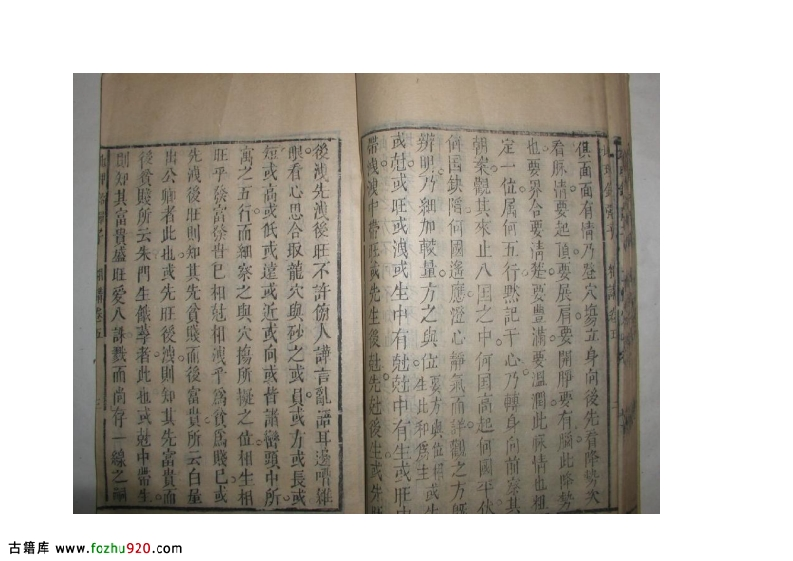 俱面面有情乃登穴塲立身向後先看降勢次
看脈情要起頂要展肩要開靜要有腦此降勢
也要界合要清基要豐滿要溫潤此脈情也相
定一位屬何五行黙記干心乃轉身向前察其
朝案觀其來止八国之中何国高起何國平伏
何国缺陷何國遙應澄心靜氣而詳觀之方旣
辨明乃細加較量方之與位要方與位相生此和爲生或生
或尅或旺或洩或生中有尅尅中有生或旺中
帶洩洩中帶旺或先生後尅先尅後生或先旺
後洩先洩後旺不許傍人譁言亂語耳邊嘈雜
眼看心思合取龍穴與砂之或員或方或長或
短或高或低或遠或近或向或背諸巒頭中所
寓之五行而細察之與穴塲所擬之位相生相
旺乎發富發貴巳或相尅相洩乎爲貧爲賤巳或
先洩後旺則知其先貧賤而後富貴所云白屋
出公卿者此也或先旺後洩則知其先富貴而
後貧賤所云朱門生餓莩者此也或尅中帶生
則知其富貴盛旺愛人誅戮而尚存一線之嗣
古籍库 www.fozhu920.com